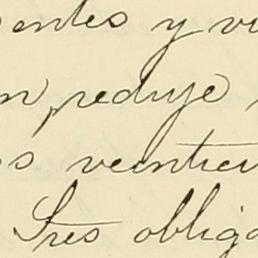 entes y vi
n, reduje
s veinticu
Tres obliga